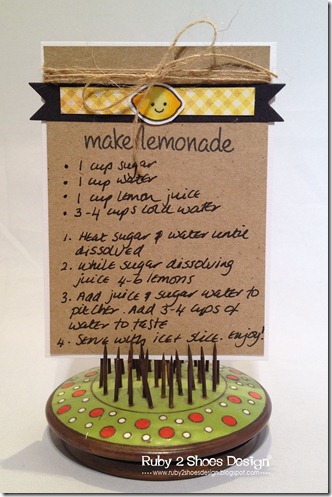 make lemonade
• 1 cup sugar
• 1 cup water
• 1 cup lemon juice
• 3-4 cups cold water
1. Heat sugar & water until
dissolved
2. While sugar dissolving
juice 4-6 lemons
3. Add juice & sugar water to
pitcher. Add 3-4 cups of
water to taste
4. Serve with ice & slice. Enjoy!
Ruby 2 Shoes Design
www.ruby2shoesdesign.blogspot.com